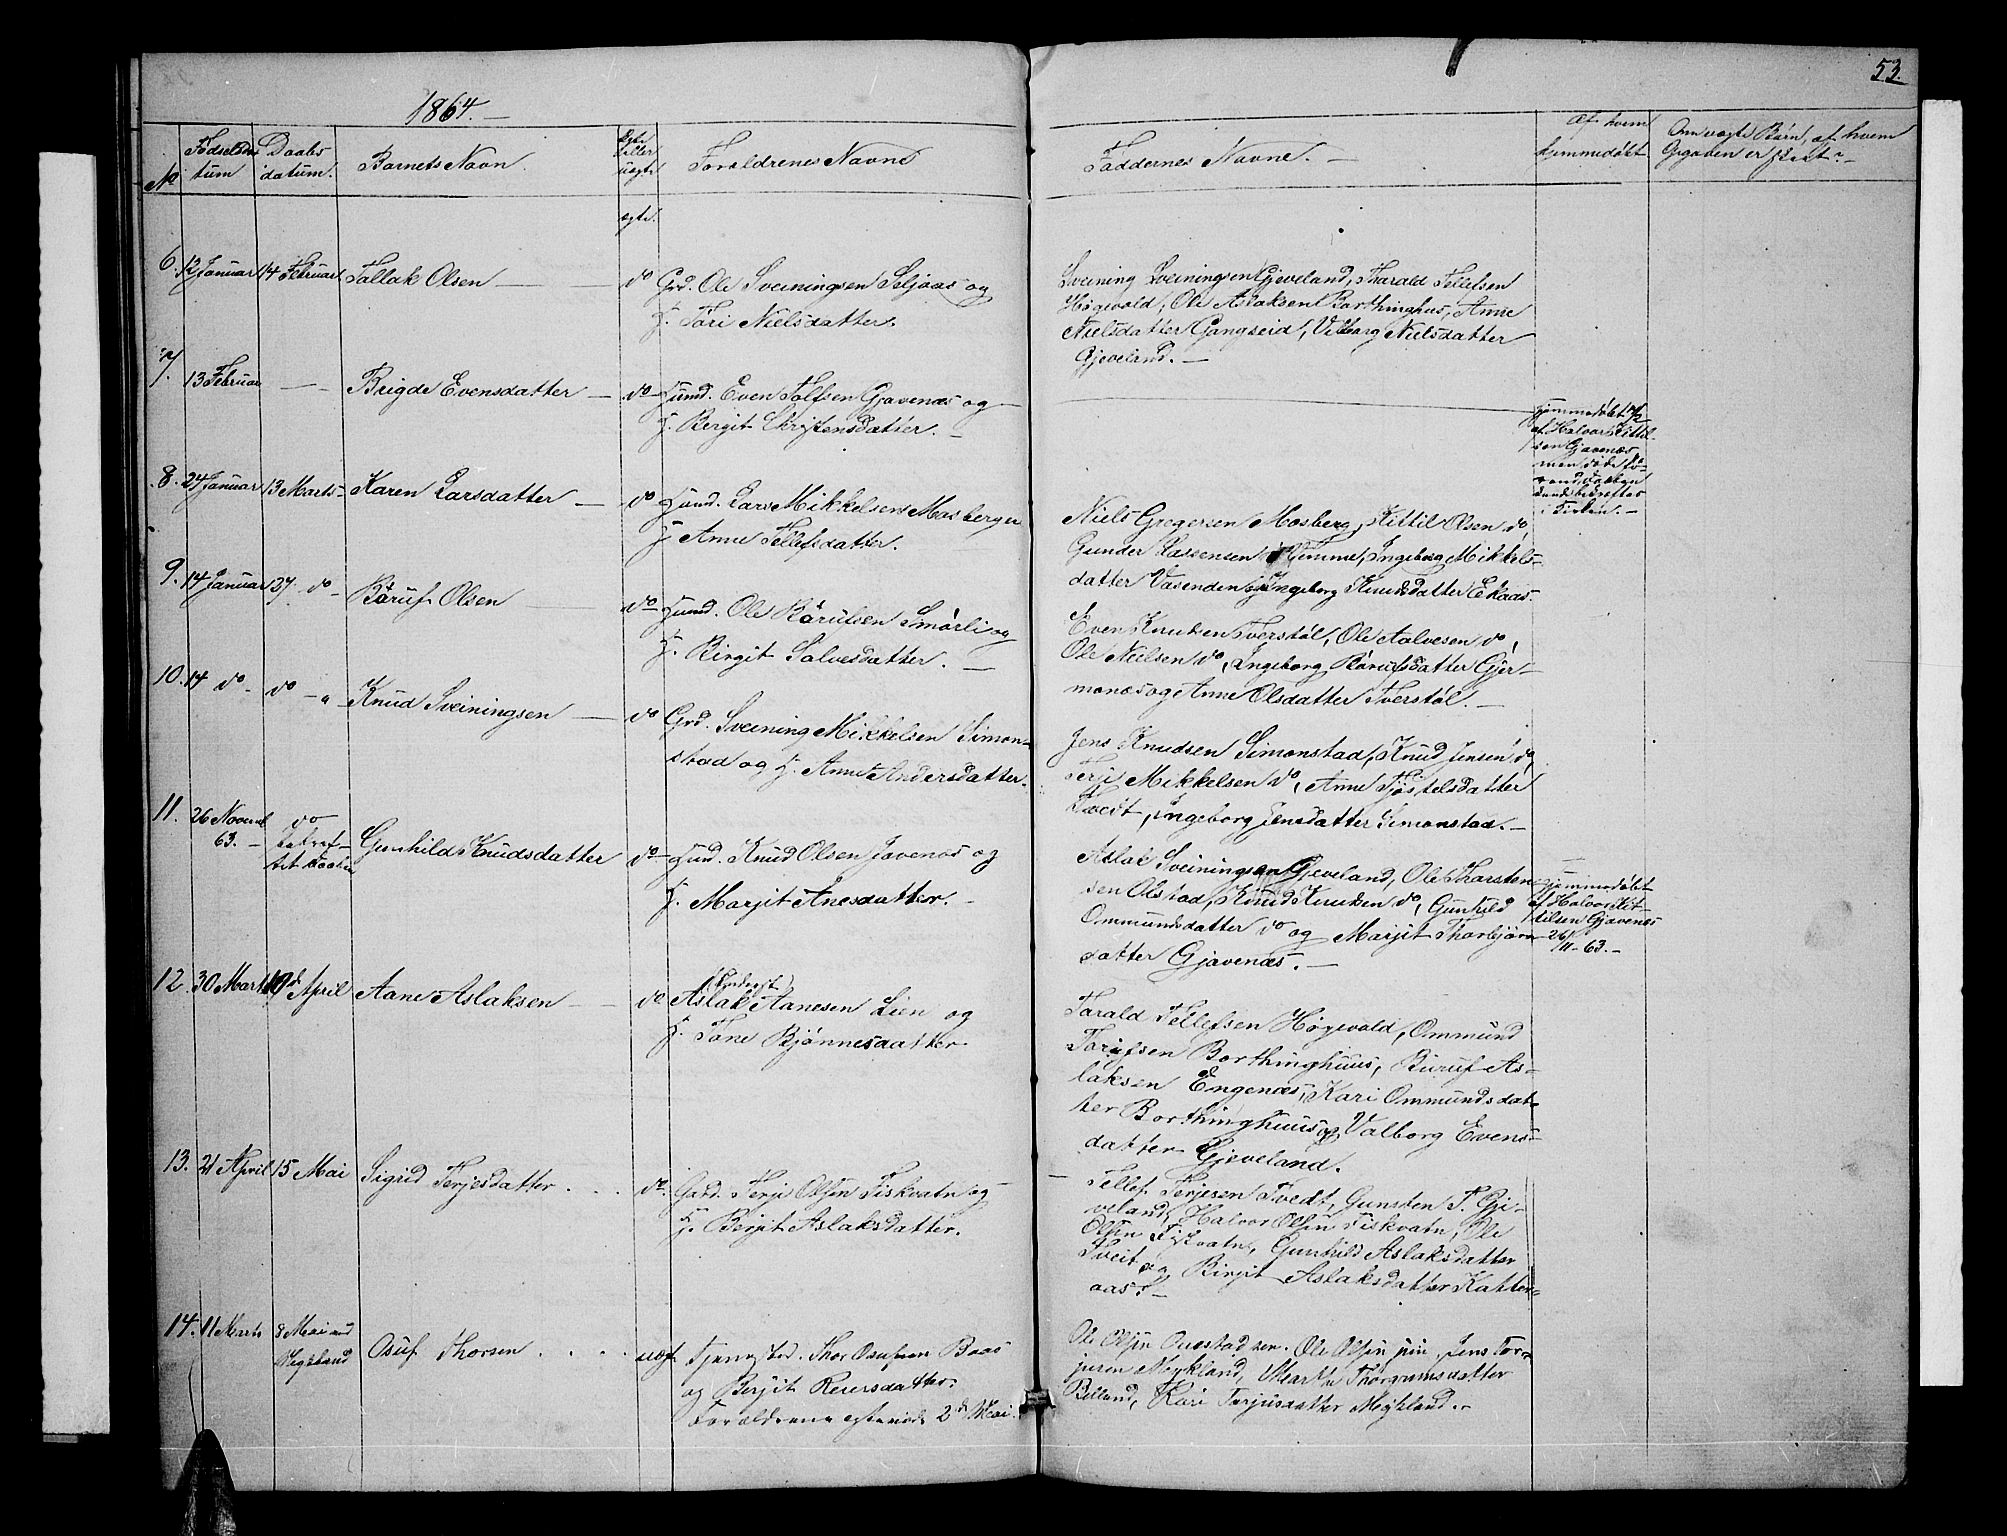 53
1864. —
No
Fødselsda-
tum
Daabs
datum.
Barnets Navn
Ægte
eller
uægte
Forældrenes Navne
Faddernes Navne. —
Af hvem
hjemmedøbt
Om uægte Børn, af hvem
Opgaven er skeet? —
ægte.
6. 12 Januar 14 Februar Tallak Olsen — do Grd. Ole Sveiningsen Seljaas og
H. Tari Nielsdatter.
Sveining Sveiningsen Gjeveland, Tharald Tellefsen
Høgevold, Ole Aslaksen Borthinghus, Anne
Nielsdatter Gangseid, Valborg Nielsdatter
Gjeveland. —
7. 13 Februar — — Brigde Evensdatter — do Huusd. Even Tolfsen Gjavenæs og
H. Bergit Christensdatter. —
hjemmedøbt
af Halvor Kittil-
sen Gjavenæs
men døde fo-
rend daaben
bekræftes
i Kirken. —
8. 24 Januar 13 Marts — Karen Larsdatter — do Huusd. Lars Mikkelsen Mosberg og
H. Anne Tellefsdatter.
Niels Gregersen Mosberg, Kittil Olsen do
Gunder Larsensen Vimme, Ingeborg Mikkels-
datter Vasenden, Ingeborg Knudsdatter Ekaas.
9. 14 Januar 27 do — Børuf Olsen — do Huusd. Ole Børufsen Smørli og
H. Birgit Salvesdatter. —
Even Knutsen Tverstøl, Ole Salvesen do,
Ole Nielsen do, Ingeborg Børufsdatter Gjer-
monæs og Anne Olsdatter Tverstøl. —
10. 14 do — do — " Knud Sveiningsen — do Grd. Sveining Mikkelsen Simon-
stad og H. Anne Andersdatter.
Jens Knudsen Simonstad, Knud Jensen do,
Terje Mikkelsen do, Anne Tjøstelsdatter
Tvedt, Ingeborg Jensdatter Simonstad. —
11. 26 Novemb
63. —
do
bekræf-
tet daaben
Gunhild Knudsdatter do Huusd. Knud Olsen Javenæs og
H. Marjit Anesdatter. —
Aslak Sveiningsen Gjeveland, Ole Tharsten-
sen Olstad, Knud Knutsen do, Gunhild
Ommundsdatter do og Marjit Thorbjørn
datter Gjavenæs. —
hjemmedøbt
af Halvor Kit-
tilsen Gjavenæs
26/11 — 63. —
12. 30 Marts 10de April Aane Aslaksen — do (Inderst)
Aslak Aanesen Lien og
H. Tone Bjønnesdatter.
Tarald Tellefsen Høgevold, Ommund
Torufsen Borthinghuus, Buruf As-
laksen Engenæs, Kari Ommundsdat-
ter Borthinghuus og Valborg Evens-
datter Gjeveland.
13. 21 April 15 Mai Sigrid Terjesdatter . . . do. Gard. Terje Olsen Fiskvatn og
H. Berjit Aslaksdatter.
— Tellef Terjesen Tvedt, Gunsten T. Gje-
veland, Halvor Olsen Fiskvatn, Ole
Olsen Fiskvatn, Gunhild Aslaksdatter
Tveit og Birgit Aslaksdatter Katter-
aas. —
14. 11 Marts 8 Mai ved
Vegusland
Osuf Thorsen . . . . uægt Tjenested. Thor Osufsen Baas
og Berjit Reiersdatter.
Forældrene egteviede 2de Mai.
Ole Olsen Ouestad sen. Ole Olsen jun, Jens Tor-
jusen Mykland, Marthe Thorgrimsdatter
Belland, Kari Terjusdatter Mykland. —